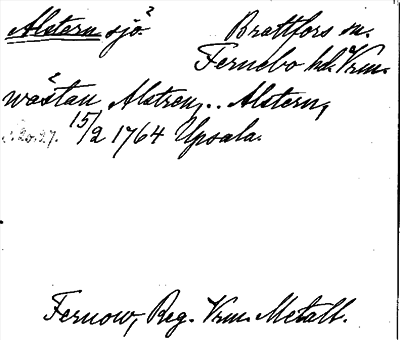 Alstern sjö? Brattfors sn.
Fernebo hd. Vrm.
wästan Alstren, .. Alstern,
15/2 1764 Upsala.
Fernow, Reg. Vrm. Metall.